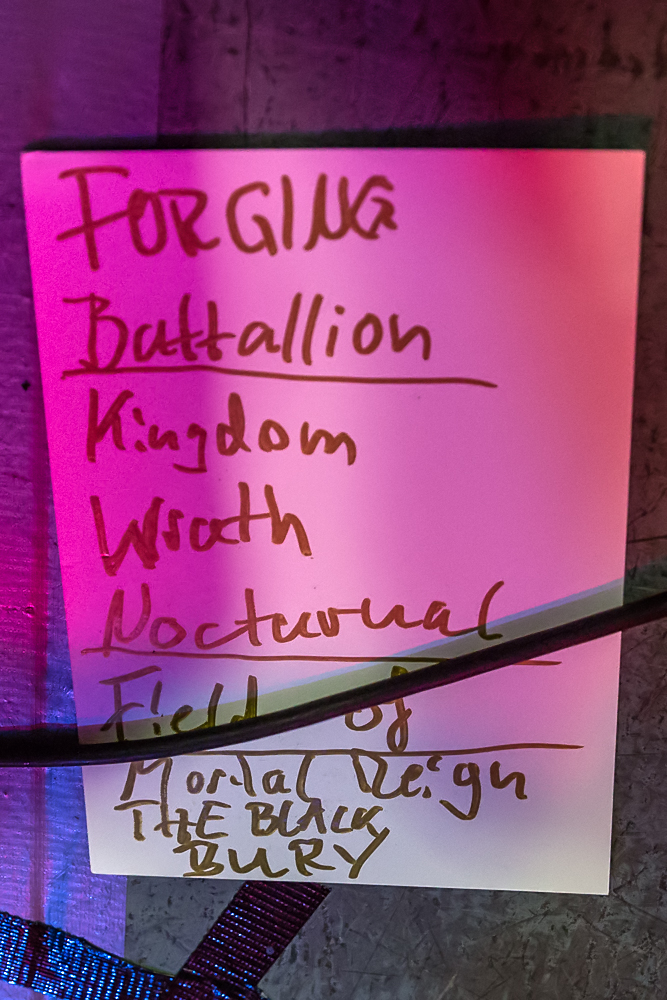 FORGING
Battallion
Kingdom
Wrath
Nocturnal
Field of
Mortal Reign
THE BLACK
BURY